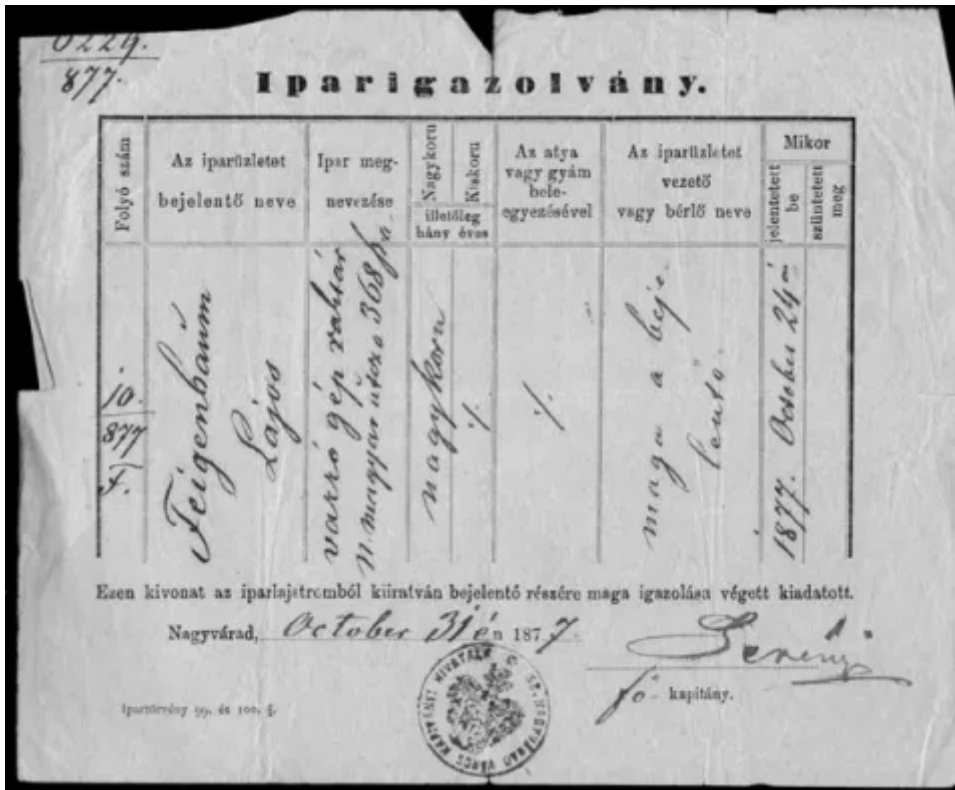 877.
Iparigazolvány.
Folyó szám
Az iparüzletet
bejelentő neve
Ipar meg-
nevezése
Nagykoru
Kiskoru
illetőleg
hány éves
Az atya
vagy gyám
bele-
egyezésével
Az iparüzletet
vezető
vagy bérlő neve
Mikor
jelentetett
be
szüntetett
meg
10.
877
F.
Feigenbaum
Lajos
varró gép raktár
n. magyar utcza 368
nagykoru
./.
./.
maga a beje-
lentő.
1877. October 24 én
Ezen kivonat az iparlajstromból kiiratván bejelentő részére maga igazolása végett kiadatott.
Nagyvárad, October 31 én 1877.
fő kapitány.
Ipartörvény 99. és 100. §.